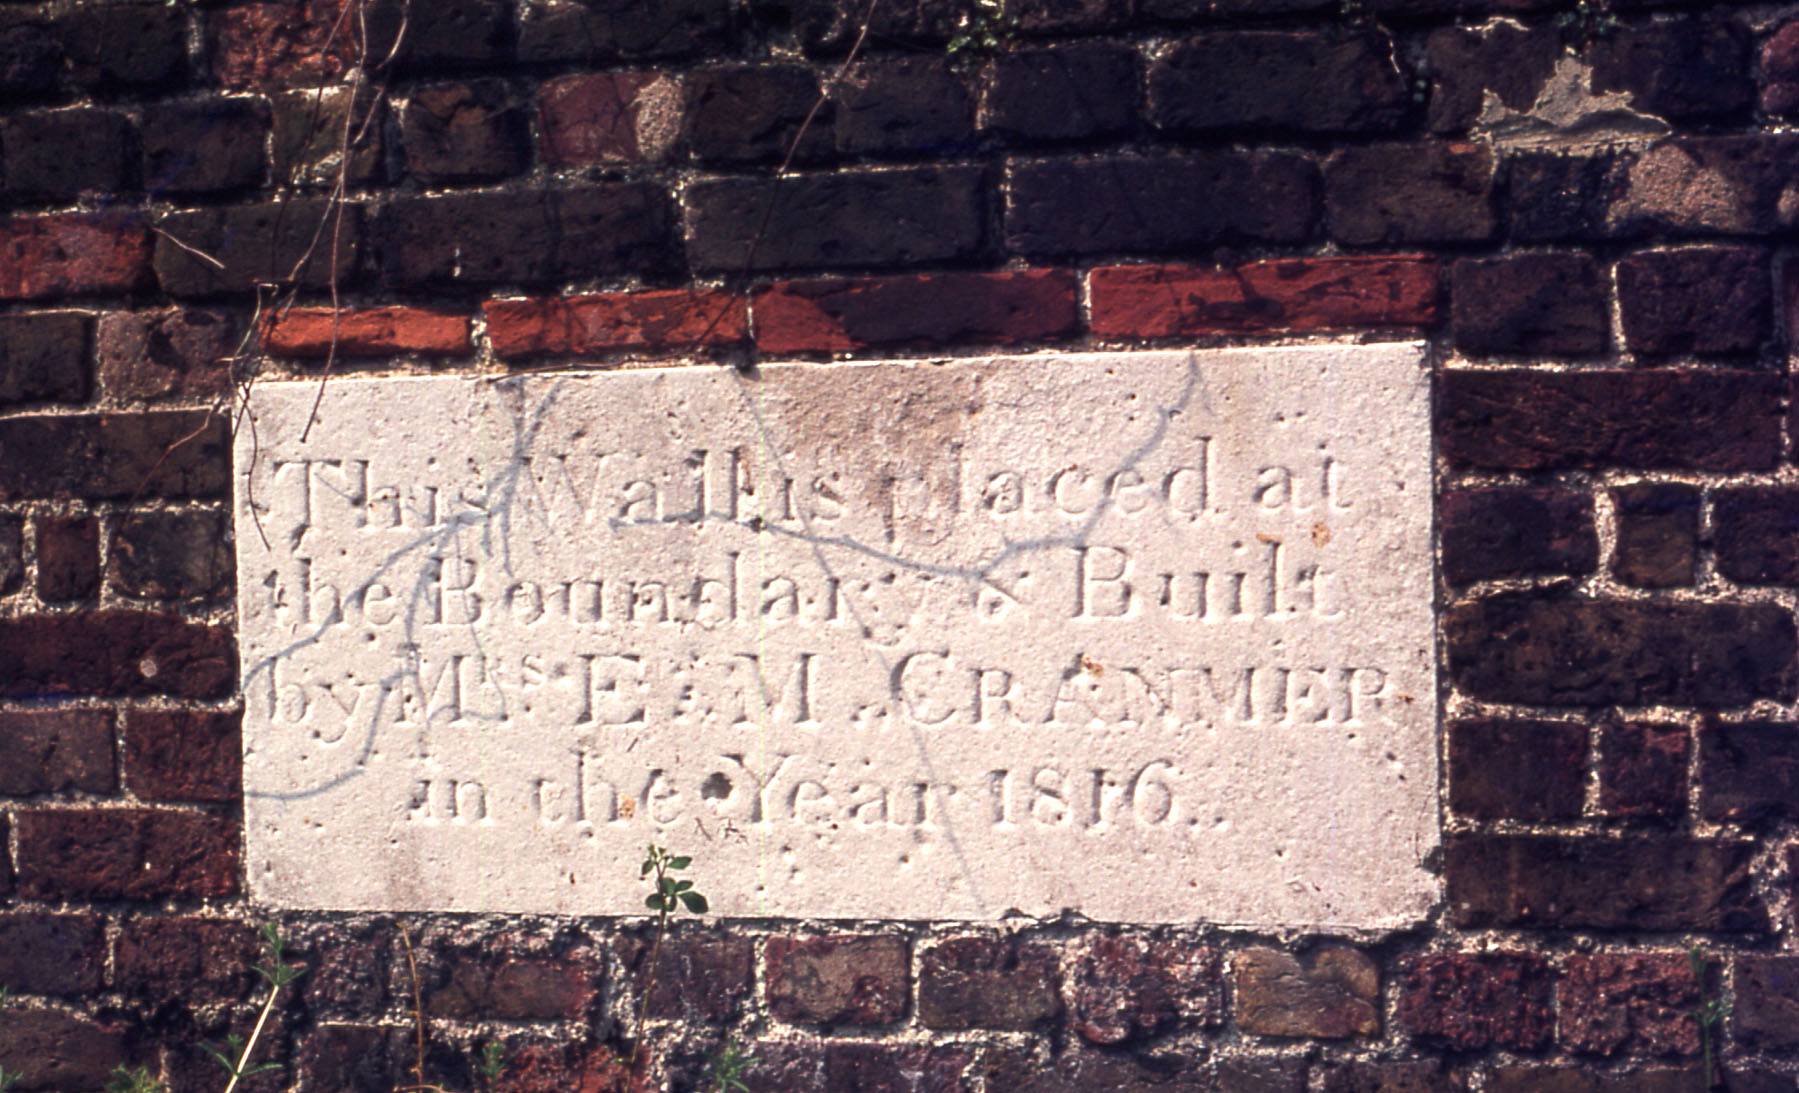 This Wall is placed at
the Boundary & Built
by Mrs. E. M. CRANMER
in the Year 1816..